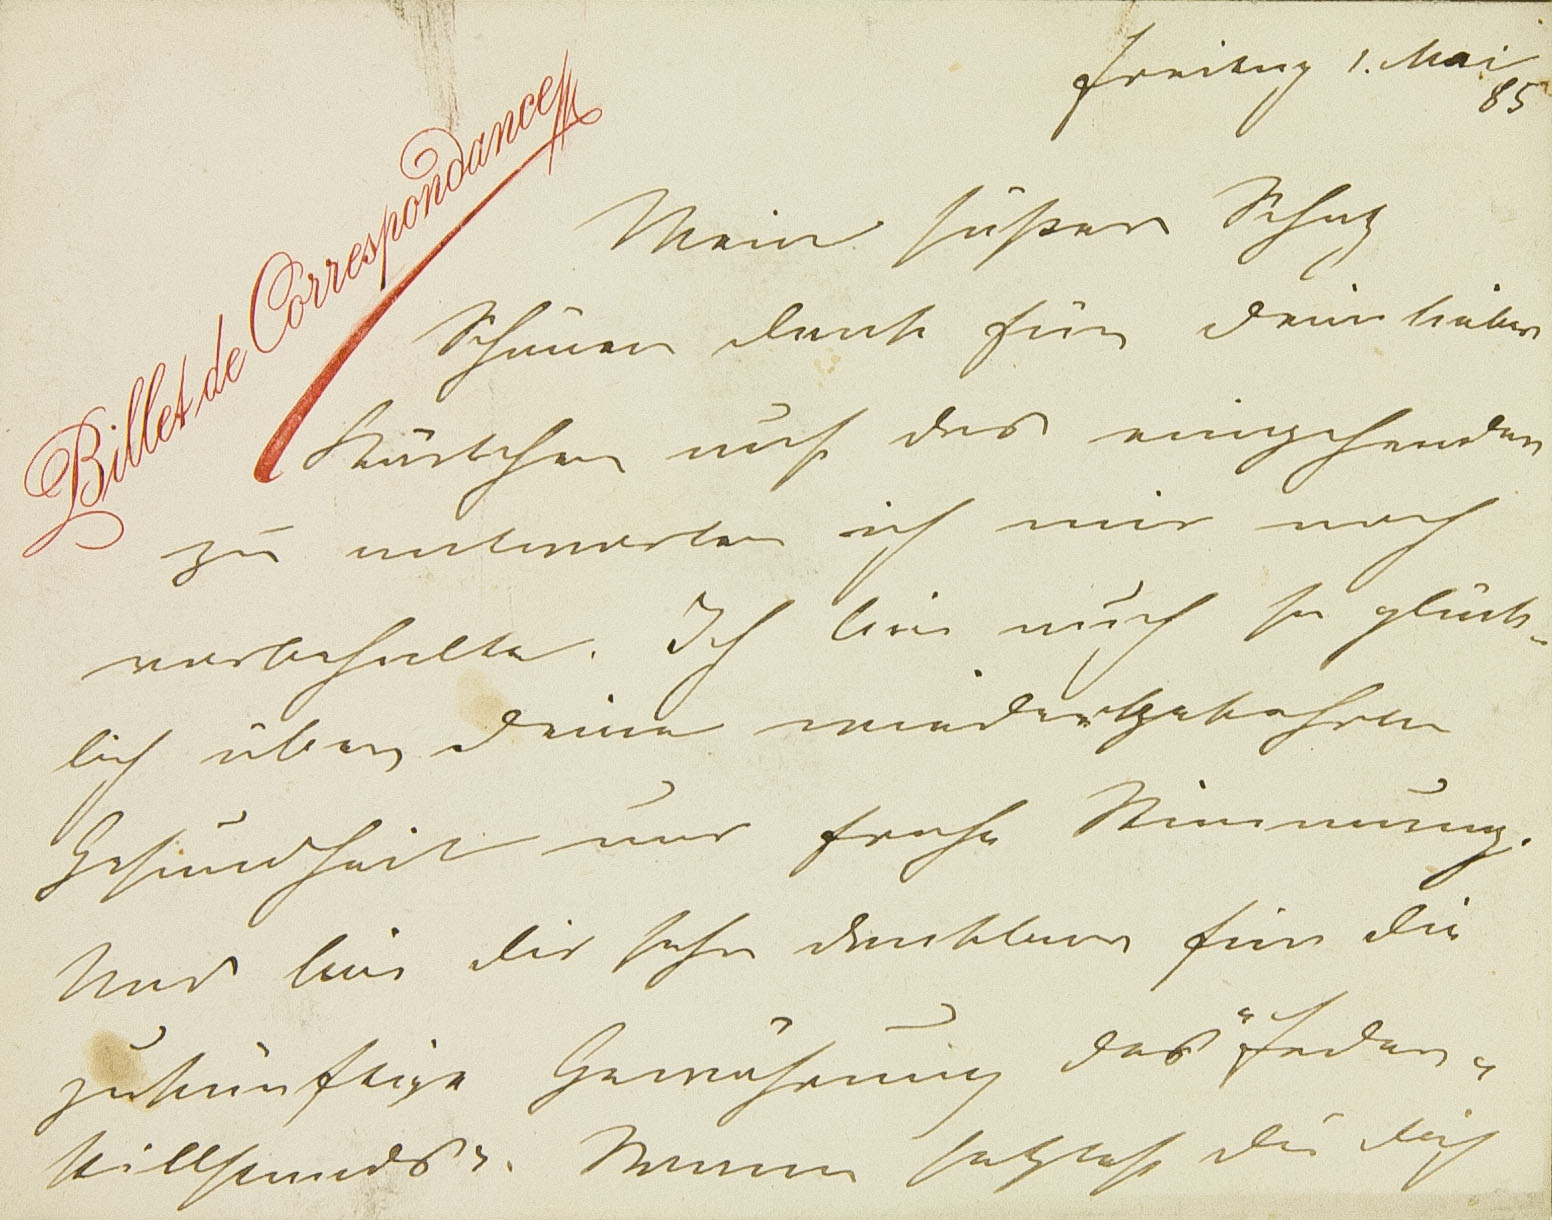 Billet de Correspondance
Freitag 1. Mai
85
Mein süßer Schatz
Schönen Dank für Dein liebes
Kärtchen auf das eingehender
zu antworten ich mir noch
vorbehalte. Ich bin auch so glück-
lich über Deine wiedergekehrte
Gesundheit und frohe Stimmung.
Und bin Dir sehr dankbar für die
zukünftige Gewährung des "Feder-
stillstands". Warum hattest Du Dich